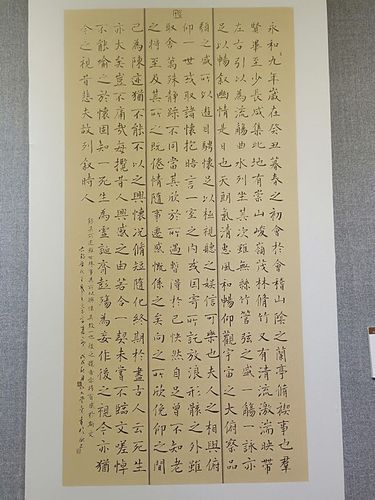 永和九年歲在癸丑暮春之初會於會稽山陰之蘭亭脩禊事也羣
賢畢至少長咸集此地有崇山峻嶺茂林脩竹又有清流激湍映帶
左右引以為流觴曲水列坐其次雖無絲竹管弦之盛一觴一詠亦
足以暢敘幽情是日也天朗氣清惠風和暢仰觀宇宙之大俯察品
類之盛所以遊目騁懷足以極視聽之娛信可樂也夫人之相與俯
仰一世或取諸懷抱晤言一室之內或因寄所託放浪形骸之外雖
取舍萬殊靜躁不同當其欣於所遇暫得於己快然自足曾不知老
之將至及其所之既倦情隨事遷感慨係之矣向之所欣俛仰之間
已為陳迹猶不能不以之興懷況脩短隨化終期於盡古人云死生
亦大矣豈不痛哉每攬昔人興感之由若合一契未嘗不臨文嗟悼
不能喻之於懷固知一死生為虛誕齊彭殤為妄作後之視今亦猶
今之視昔悲夫故列敘時人
錄其所述雖世殊事異所以興懷其致一也後之攬者亦將有感於斯文